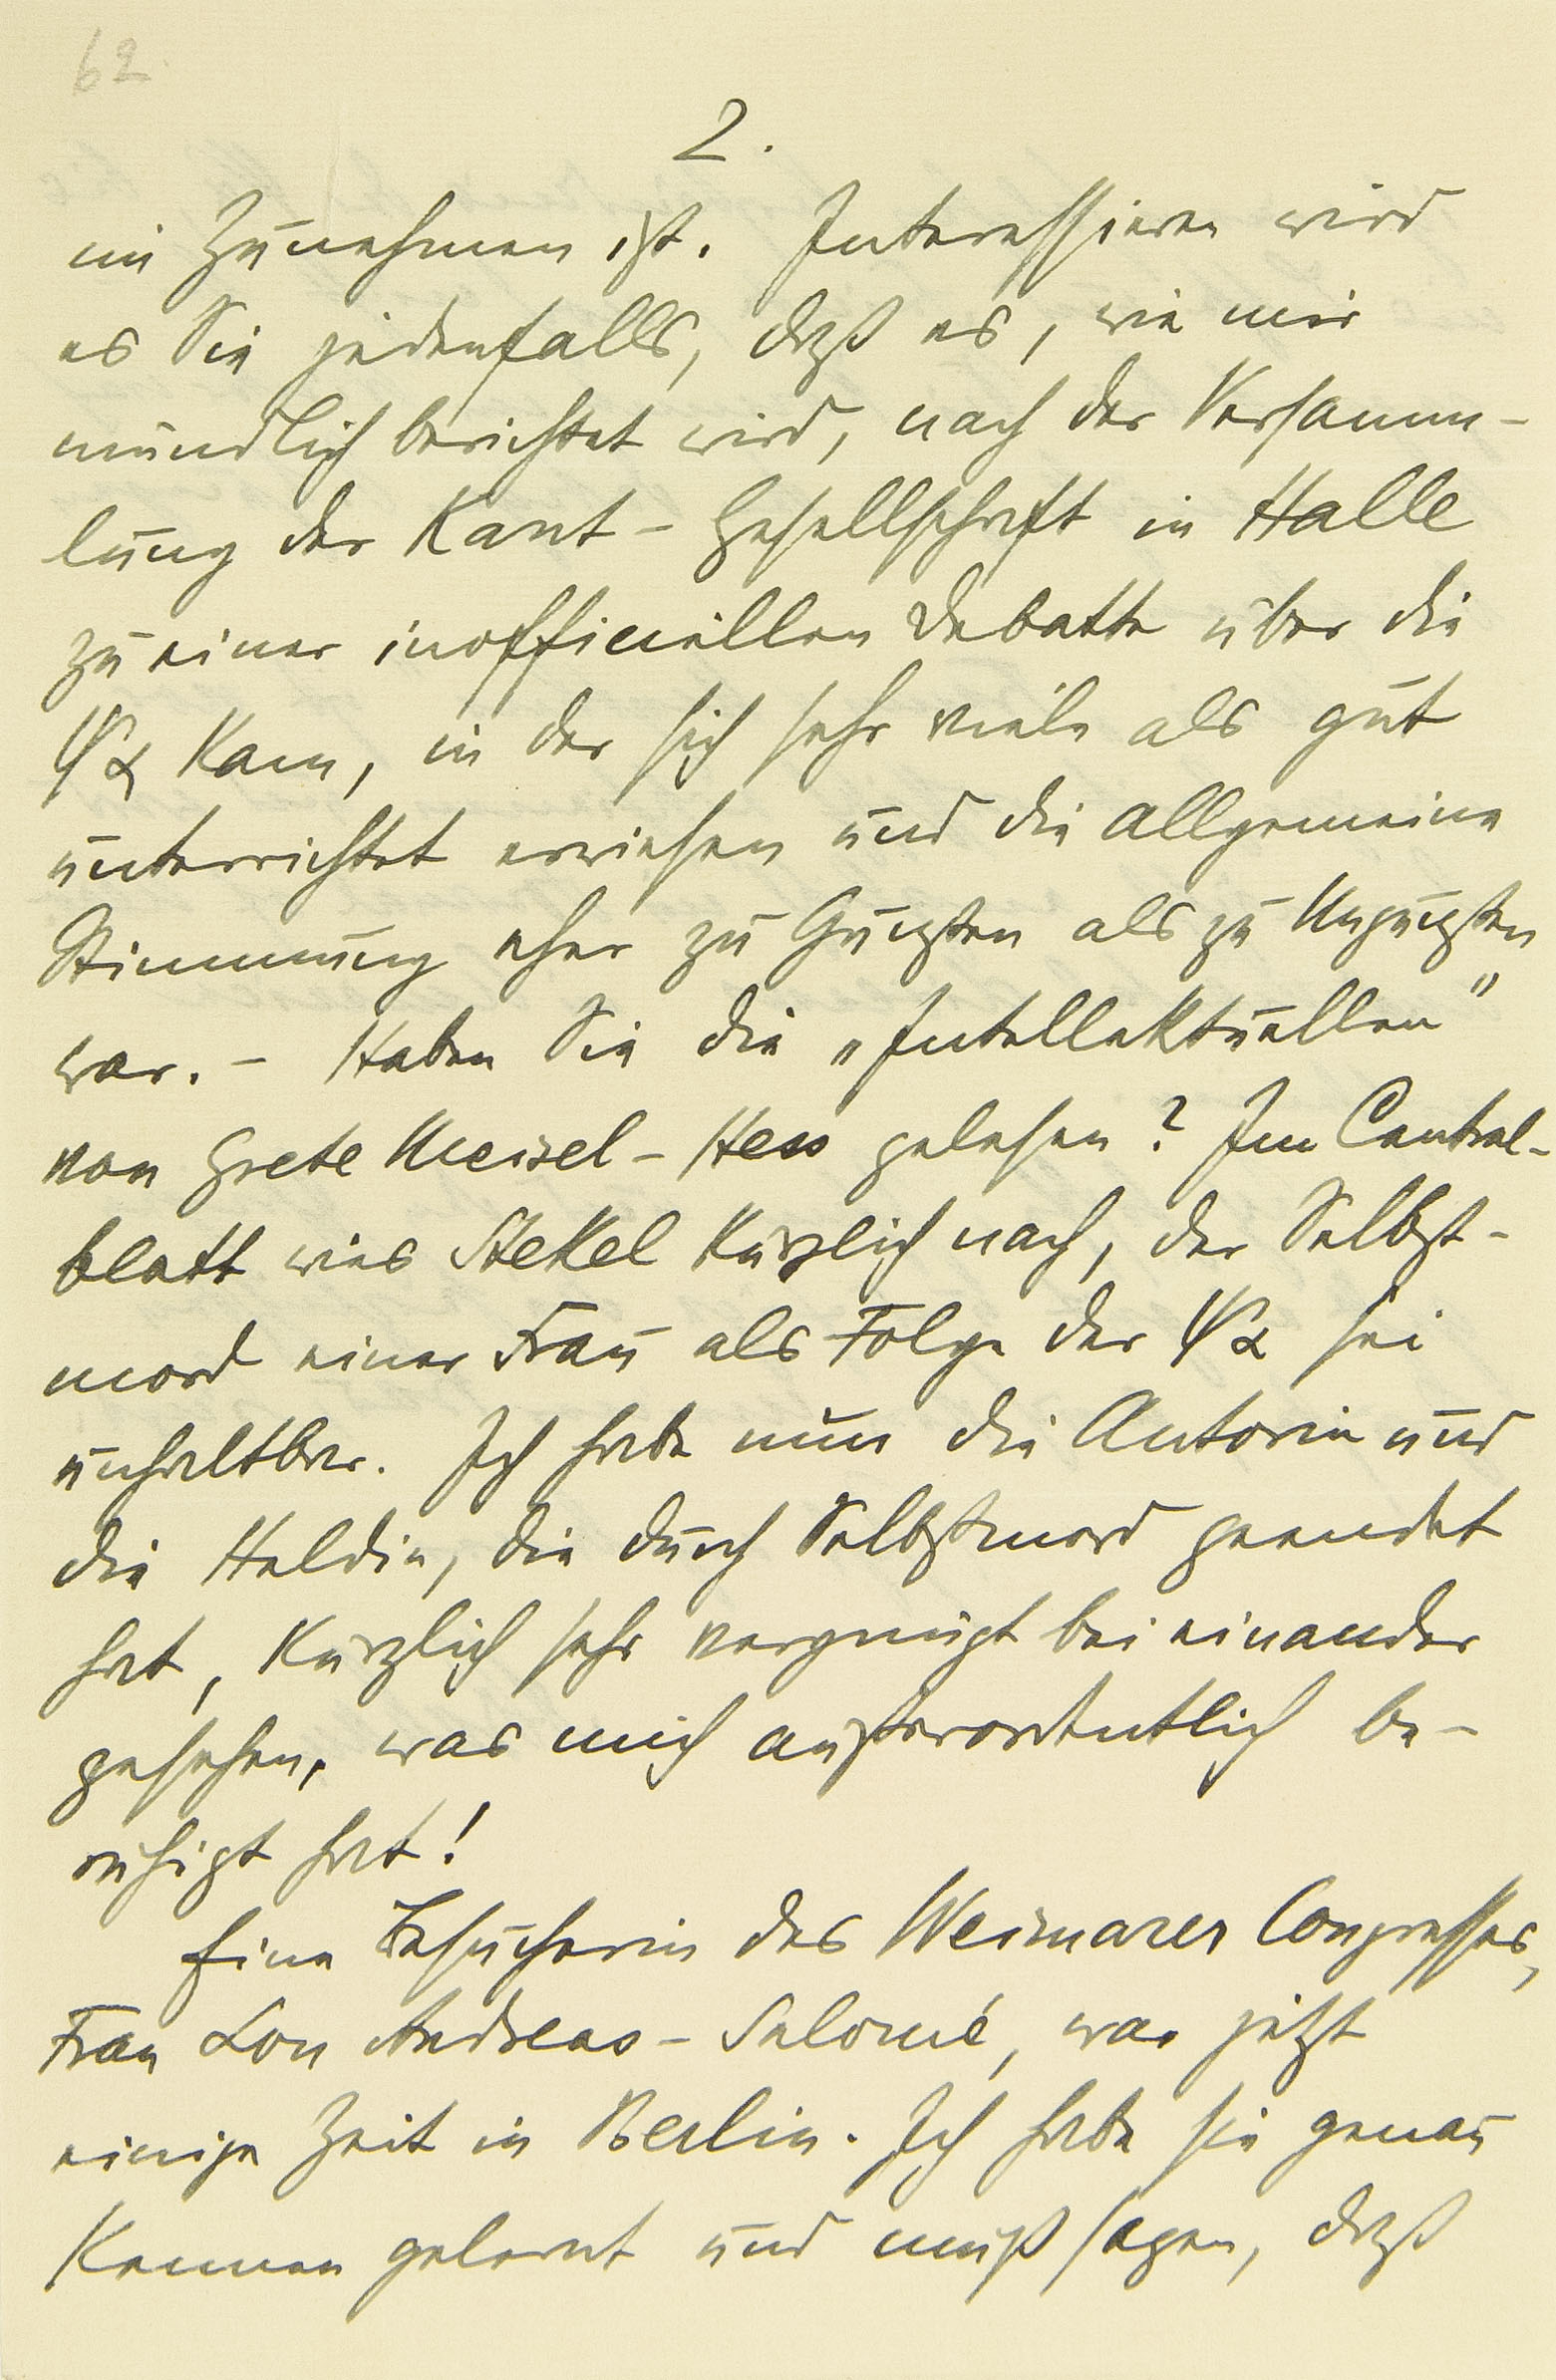 62
2.
im Zunehmen ist. Interessieren wird
es Sie jedenfalls, daß es, wie mir
mündlich berichtet wird, nach der Versamm-
lung der Kant-Gesellschaft in Halle
zu einer inofficiellen Debatte über die
ΨΑ kam, in der sich sehr viele als gut
unterrichtet erwiesen und die allgemeine
Stimmung eher zu Gunsten als zu Ungunsten
war. – Haben Sie die „Intellektuellen“
von Grete Meisel-Hess gelesen? Im Central-
blatt wies Stekel kürzlich nach, der Selbst-
mord einer Frau als Folge der ΨΑ sei
unhaltbar. Ich habe nun die Autorin und
die Heldin, die durch Selbstmord geendet
hat, kürzlich sehr vergnügt bei einander
gesehen, was mich außerordentlich be-
ruhigt hat!
Eine Besucherin des Weimarer Congresses,
Frau Lou Andreas-Salomé, war jetzt
einige Zeit in Berlin. Ich habe sie genau
kennen gelernt und muß sagen, daß